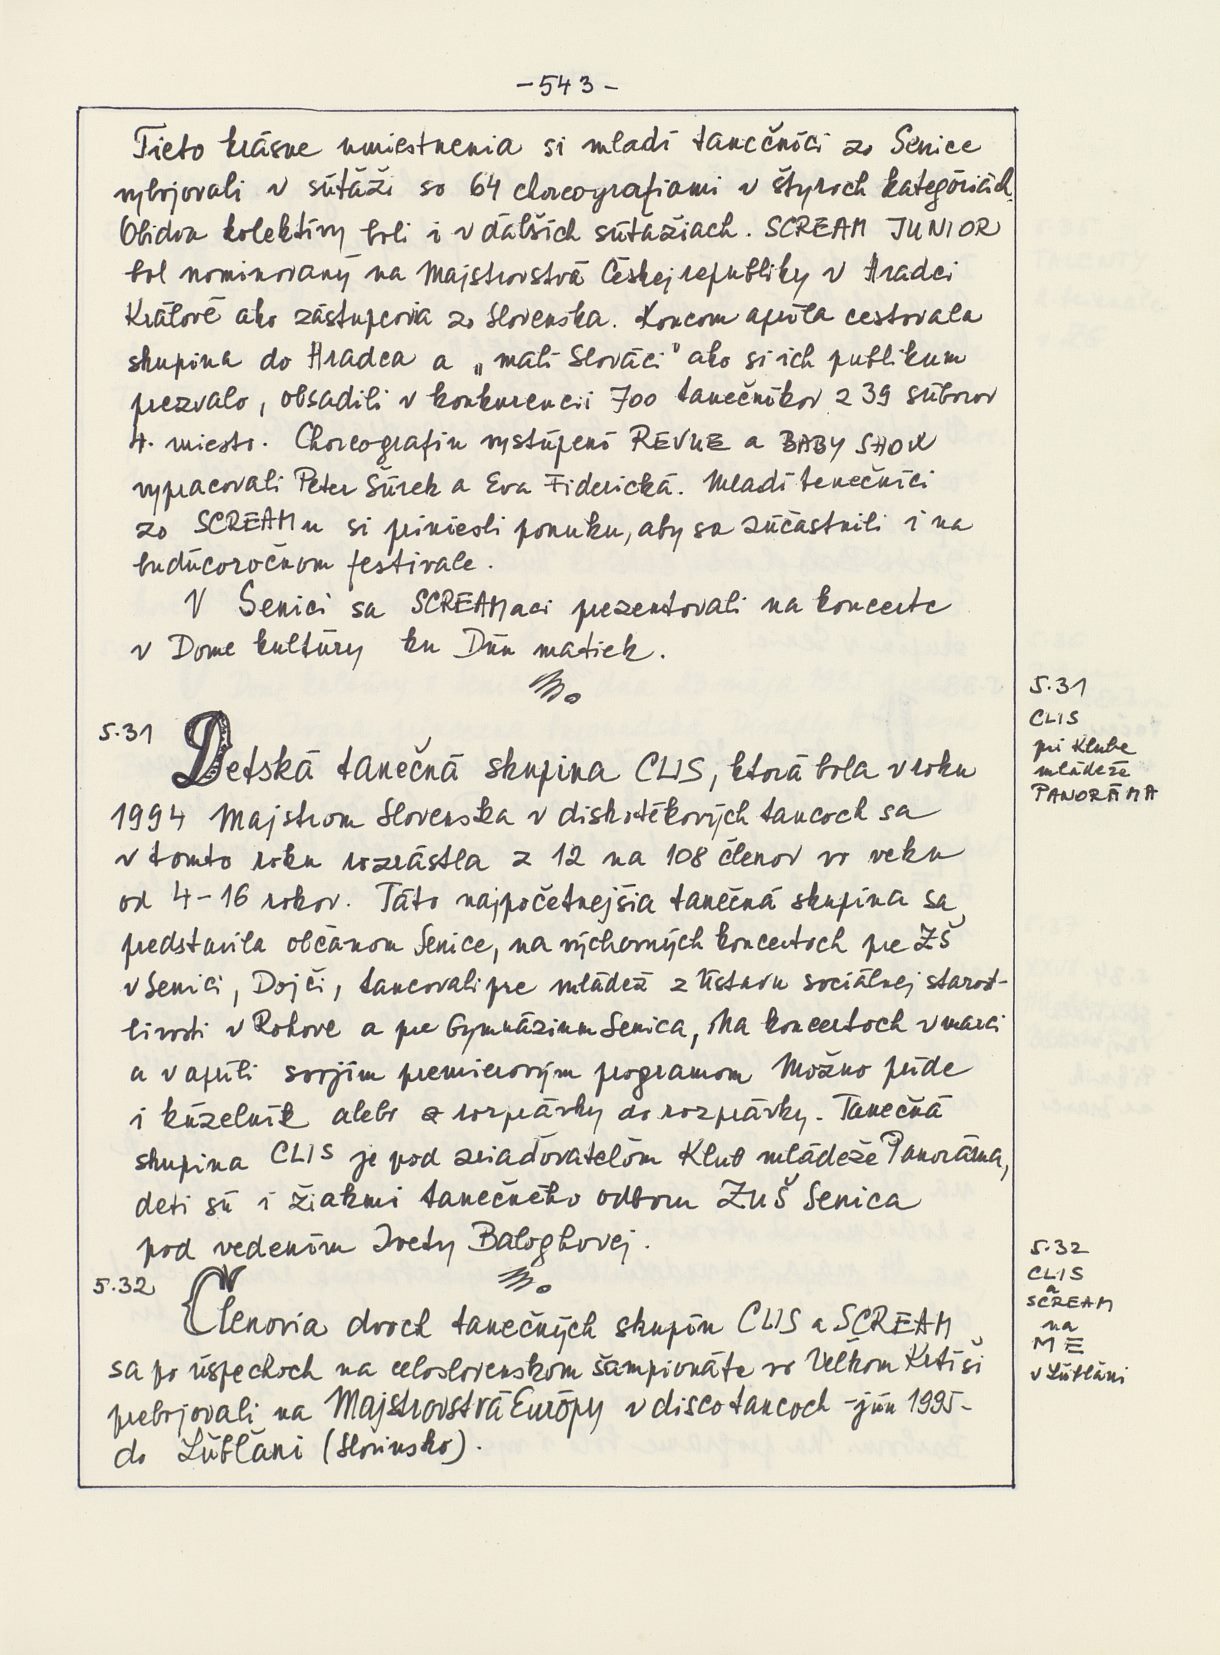 -543-
Tieto krásne umiestnenia si mladí tanečníci zo Senice
vybojovali v súťaži so 64 choreografiami v štyroch kategóriách.
Obidva kolektívy boli i v ďaľších súťažiach. SCREAM JUNIOR
bol nominovaný na Majstrovstvá Českej republiky v Hradci
Králové ako zástupcovia zo Slovenska. Koncom apríla cestovala
skupina do Hradca a „malí Slováci" ako si ich publikum
prezvalo, obsadili v konkurencii 700 tanečníkov z 39 súborov
4. miesto. Choreografiu vystúpení REVUE a BABY SHOW
vypracovali Peter Šúrek a Eva Fiderická. Mladí tanečníci
zo SCREAMu si priniesli ponuku, aby sa zúčastnili i na
budúcoročnom festivale.
V Senici sa SCREAMaci prezentovali na koncerte
v Dome kultúry ku Dňu matiek.
5.31
Detská tanečná skupina CLIS, ktorá bola v roku
1994 Majstrom Slovenska v diskotékových tancoch sa
v tomto roku rozrástla z 12 na 108 členov vo veku
od 4-16 rokov. Táto najpočetnejšia tanečná skupina sa
predstavila občanom Senice, na výchovných koncertoch pre ZŠ
v Senici, Dojči, tancovali pre mládež z Ústavu sociálnej starost-
livosti v Rohove a pre Gymnázium Senica, Na koncertoch v marci
a v apríli svojím premierovým programom Možno príde
i kúzelník alebo z rozprávky do rozprávky. Tanečná
skupina CLIS je pod zriaďovateľom Klub mládeže Panoráma,
deti sú i žiakmi tanečného odboru ZUŠ Senica
pod vedením Ivety Baloghovej.
5.32
Členovia dvoch tanečných skupín CLIS a SCREAM
sa po úspechoch na celoslovenskom šampionáte vo Veľkom Krtíši
prebojovali na Majstrovstvá Európy v disco tancoch - jún 1995 -
do Ľúbľani (Slovinsko).
5.31
CLIS
pri Klube
mládeže
PANORÁMA
5.32
CLIS
a
SCREAM
na
ME
v Ľúbľáni